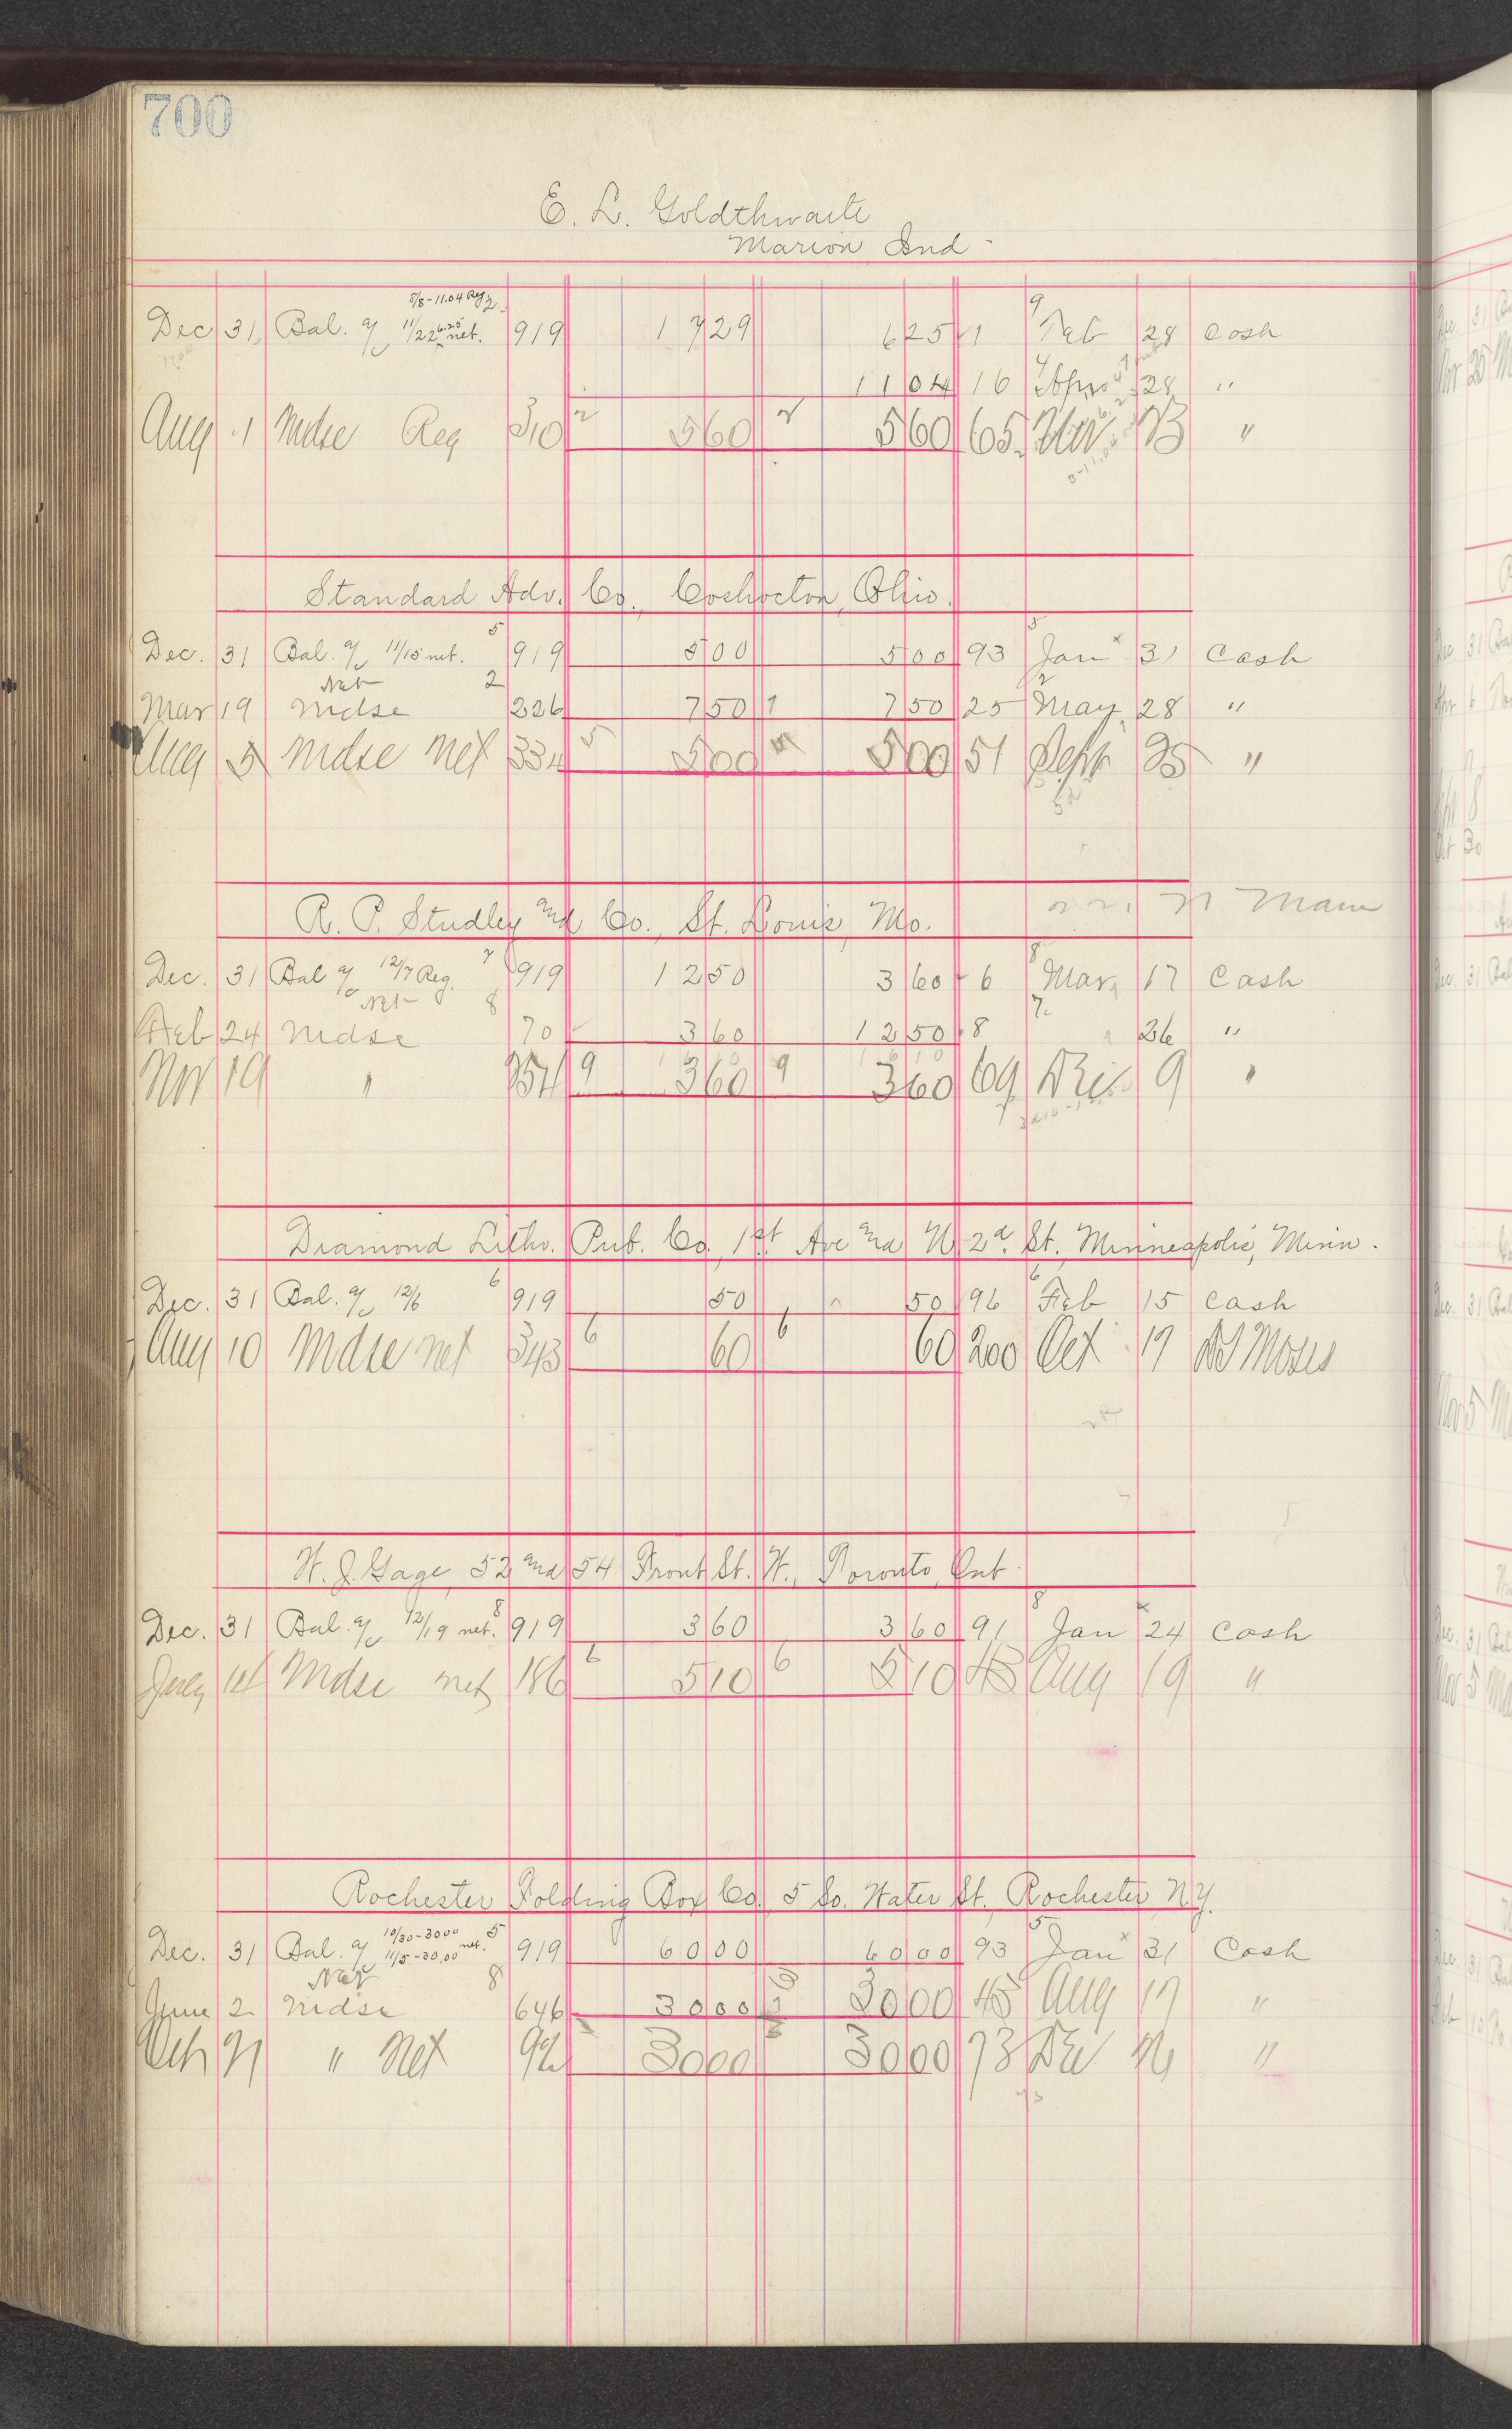 700
E. L. Goldthwaite
Marion Ind -
5/8-11.04 Reg 2.
Dec 31 Bal. a/c 11/22 6.25 net. 919 17 29 6 25 1 9 Feb 28 Cash
11 04 16 4 28 "
Aug 1 Mdse Reg 310 2 5 60 2 5 60 65 Nov. 13 "
Standard Adv. Co., Coshocton, Ohio.
Dec. 31 Bal. a/c 11/15 net. 5 919 5 00 5 00 93 5 Jan 31 Cash
Net 2
Mar 19 Mdse 226 7 50 1 7 50 25 2 May 28 "
Aug 5 Mdse Net 334 5 5 00 5 00 51 Sept 25 "
R. P. Studley and Co., St. Louis, Mo.
Dec. 31 Bal a/c 12/7 Reg. 7 919 12 50 3 60 6 8 Mar, 17 Cash
Net 8 7
Feb 24 Mdse 70 3 60 12 50 8 " 26 "
Nov 19 " 254 9 3 60 9 3 60 69 9 "
Diamond Litho. Pub. Co. 1st. Ave and N. 2d. St. Minneapolis, Minn.
Dec. 31 Bal. a/c 12/6 6 919 50 50 96 6 Feb 15 Cash
Aug 10 Mdse net 343 6 60 6 60 200 Oct 17 Moses
W. J. Gage, 52 and 54 Front St. W., Toronto, Ont.
Dec. 31 Bal. a/c 12/19 net. 8 919 3 60 3 60 91 8 Jan 24 Cash
July Mdse net 186 6 5 10 6 5 10 43 Aug 19 "
Rochester Folding Box Co. 5 So. Water St. Rochester N.Y.
Dec. 31 Bal. a/c 10/30-3000 11/5-30.00 net. 5 919 60 00 60 00 93 5 Jan 31 Cash
Net 8
June 2 Mdse 646 30 00 30 00 45 Aug 17 "
Oct 21 " Net 92 30 00 30 00 73 Dec 26 "